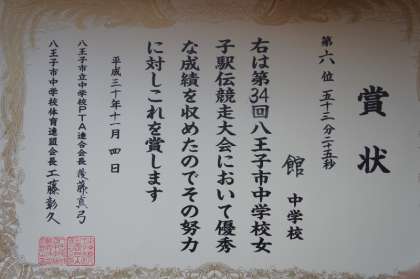 賞状
第六位 五十三分二十五秒
館 中学校
右は第34回八王子市中学校女
子駅伝競走大会において優秀
な成績を収めたのでその努力
に対しこれを賞します
平成三十年十一月四日
八王子市立中学校PTA連合会長 後藤真弓
八王子市中学校体育連盟会長 工藤彰久